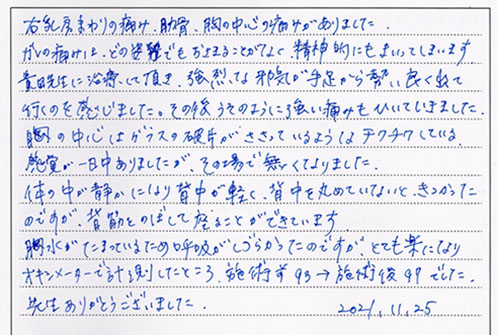 右乳房まわりの痛み、肋骨、胸の中心の痛みがありました。
がんの痛みは、どの姿勢でもおさまることがなく、精神的にもまいってしまいます
先生に治療して頂き、強烈な邪気が手足から勢い良く出て
行くのを感じました。その後うそのように強い痛みもひいていきました。
胸の中心はガラスの破片がささっているようなチクチクしている
感覚が一日中ありましたが、その場で無くなりました。
体の中が静かになり背中が軽く、背中を丸めていないと、きつかった
のですが、背筋をのばして座ることができています
胸水がたまっているため呼吸がしづらかったのですが、とても楽になり
オキシメーターで計測したところ、施術前93→施術後99でした。
先生ありがとうございました。 2021.11.25